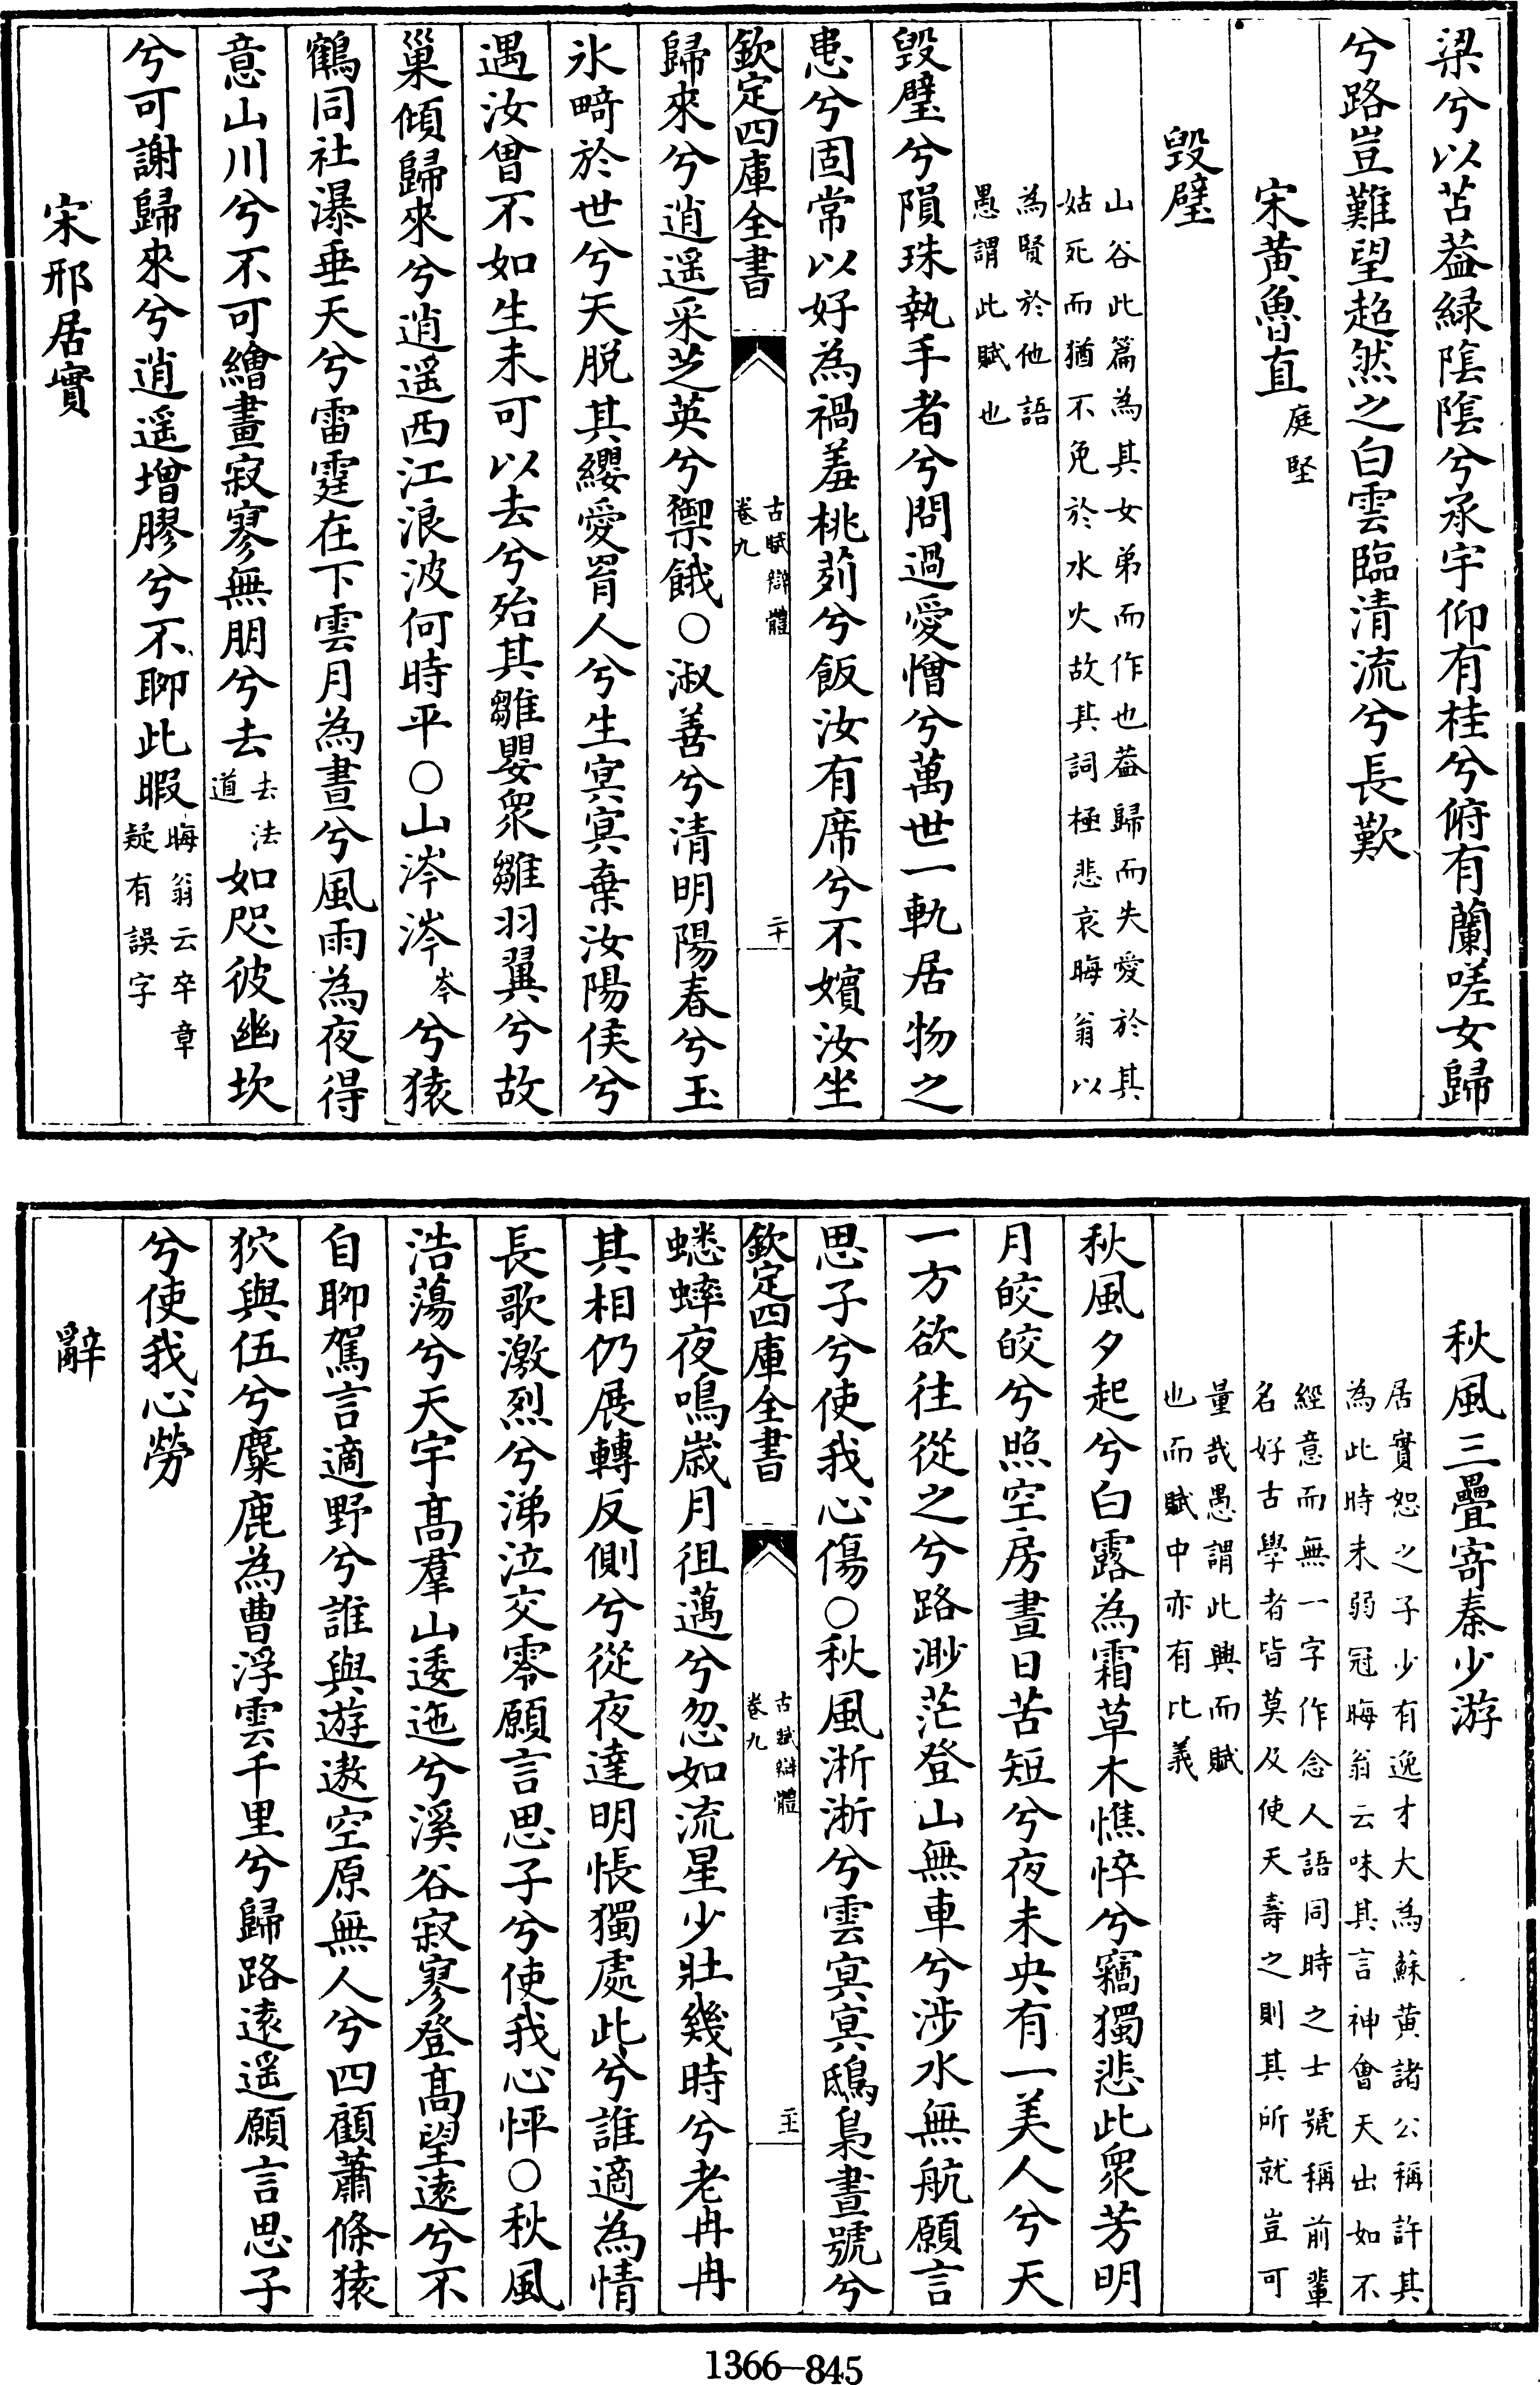 梁兮以苫葢緑隂隂兮承宇仰有桂兮俯有蘭嗟女歸
兮路豈難望超然之白雲臨清流兮長歎
宋黄魯直庭堅
毁璧
山谷此篇為其女弟而作也葢歸而失愛於其
姑死而猶不免於水火故其詞極悲哀晦翁以
為賢於他語
愚謂此賦也
毁璧兮隕珠執手者兮問過愛憎兮萬世一軌居物之
患兮固常以好為禍羞桃茢兮飯汝有席兮不嬪汝坐
欽定四庫全書
古賦辯體
卷九
二十
歸來兮逍遥采芝英兮禦餓○淑善兮清明陽春兮玉
氷畸於世兮兮天脱其纓愛胷人兮生冥冥棄汝陽侯兮
遇汝曾不如生未可以去兮殆其雛嬰衆雛羽翼兮故
巢傾歸來兮逍遥西江浪波何時平○山涔涔岑兮猿
鶴同社瀑垂天兮雷霆在下雲月為晝兮風雨為夜得
意山川兮不可繪畫寂寥無朋兮去去法道如咫彼幽坎
兮可謝歸來兮逍遥增膠兮不聊此暇晦翁云卒章疑有誤字
宋邢居實
秋風三疊寄秦少游
居實恕之子少有逸才大為蘇黄諸公稱許其
為此時未弱冠晦翁云味其言神會天出如不
經意而無一字作念人語同時之士號稱前輩
名好古學者皆莫及使天壽之則其所就豈可
量哉愚謂此興而賦
也而賦中亦有比義
秋風夕起兮白露為霜草木憔悴兮竊獨悲此衆芳明
月皎皎兮照空房晝日苦短兮夜未央有一美人兮天
一方欲往從之兮路渺茫登山無車兮渉水無航願言
思子兮使我心傷○秋風淅淅兮雲冥冥鴟梟晝號兮
欽定四庫全書
古賦辯體
卷九
二十一
蟋蟀夜鳴嵗月徂邁兮忽如流星少壯幾時兮老冉冉
其相仍展轉反側兮從夜達明悵獨處此兮誰適為情
長歌激烈兮涕泣交零願言思子兮使我心怦○秋風
浩蕩兮天宇髙羣山逶迤兮溪谷寂寥登髙望逺兮不
自聊駕言適野兮誰與遊遨空原無人兮四顧蕭條猿
狖與伍兮麋鹿為曹浮雲千里兮歸路逺遥願言思子
兮使我心勞
辭
1366—845